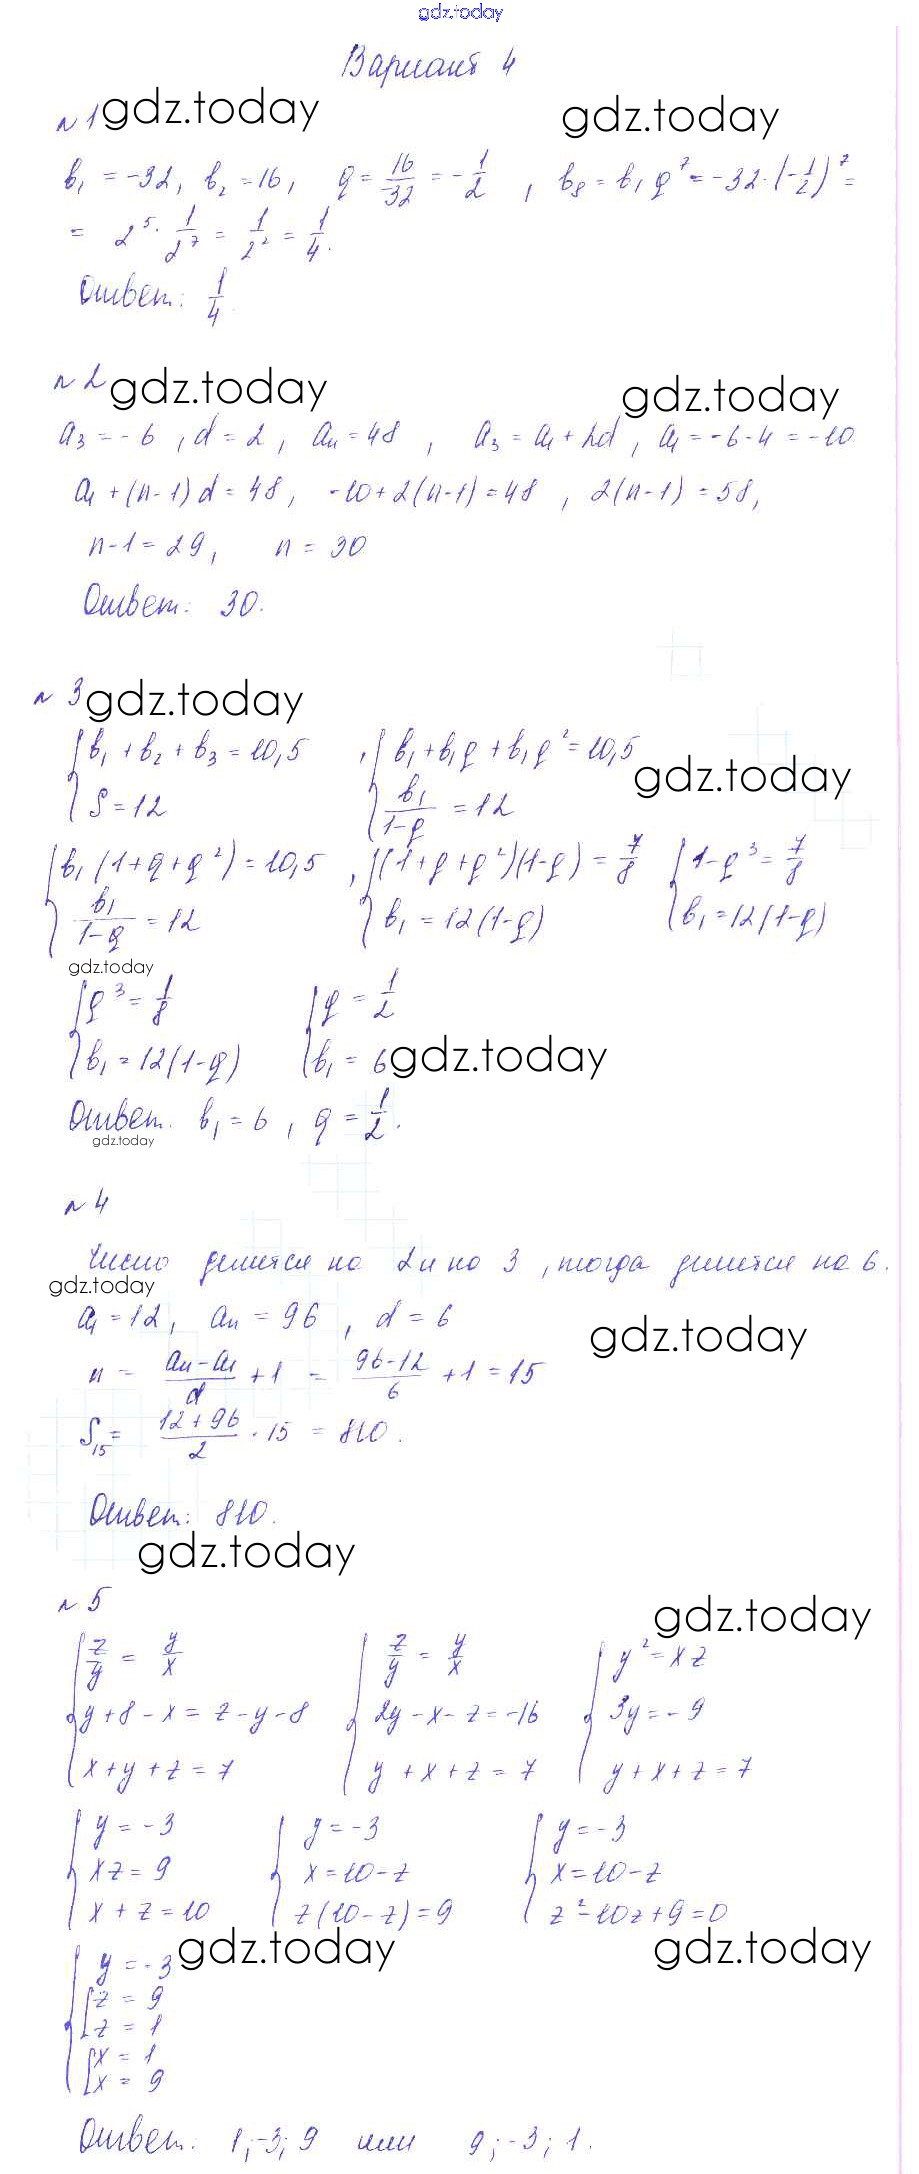 gdz.today
Вариант 4
№1 gdz.today gdz.today
b₁ = -32, b₂ = 16, q = 16/-32 = -1/2, b₈ = b₁q⁷ = -32·(-1/2)⁷ =
= 2⁵·1/2⁷ = 1/2² = 1/4.
Ответ: 1/4.
№2 gdz.today gdz.today
a₃ = -6, d = 2, aₙ = 48, a₃ = a₁ + 2d, a₁ = -6-4 = -10
a₁ + (n-1)d = 48, -10+2(n-1) = 48, 2(n-1) = 58,
n-1 = 29, n = 30
Ответ: 30.
№3 gdz.today
{b₁ + b₂ + b₃ = 10,5 , {b₁ + b₁q + b₁q² = 10,5
gdz.today
S = 12 b₁/(1-q) = 12
{b₁(1+q+q²) = 10,5 , {(1+q+q²)(1-q) = 7/8 {1-q³ = 7/8
b₁/(1-q) = 12 b₁ = 12(1-q) b₁ = 12(1-q)
gdz.today
{q³ = 1/8 {q = 1/2
b₁ = 12(1-q) b₁ = 6 gdz.today
Ответ. b₁ = 6, q = 1/2.
gdz.today
№4
Число делится на 2 и на 3, тогда делится на 6.
gdz.today
a₁ = 12, aₙ = 96, d = 6
gdz.today
n = (aₙ-a₁)/d + 1 = (96-12)/6 + 1 = 15
S₁₅ = (12+96)/2 · 15 = 810.
Ответ: 810.
gdz.today
№5
gdz.today
{z/y = y/x {z/y = y/x {y² = xz
y+8-x = z-y-8 2y-x-z = -16 3y = -9
x+y+z = 7 y+x+z = 7 y+x+z = 7
{y = -3 {y = -3 {y = -3
xz = 9 x = 10-z x = 10-z
x+z = 10 z(10-z) = 9 z²-10z+9 = 0
{y = -3 gdz.today gdz.today
[z = 9
z = 1
[x = 1
x = 9
Ответ: 1; -3; 9 или 9; -3; 1.